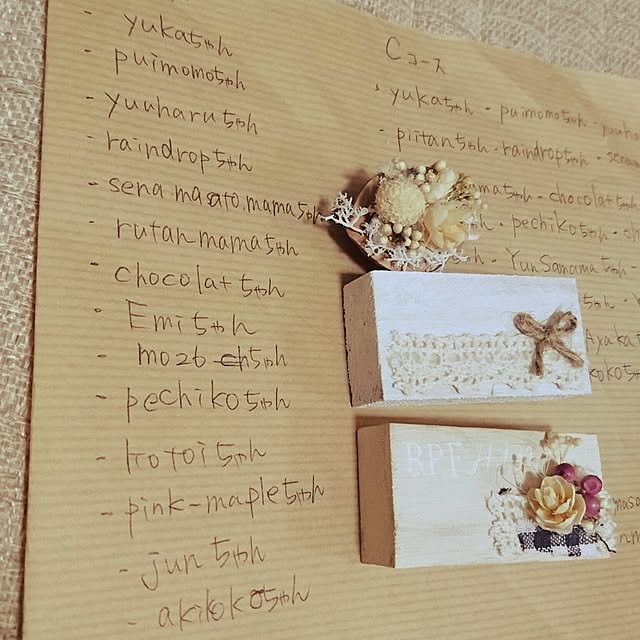 - yukaちゃん
- puimomoちゃん
- yuuharuちゃん
- raindropちゃん
- sena.masato.mamaちゃん
- rutanmamaちゃん
- chocolatちゃん
- Emiちゃん
- mo26 ちゃん
- pechikoちゃん
- kotoiちゃん
- pink-mapleちゃん
- junちゃん
- akikokoちゃん
Cコース
・yukaちゃん - puimomoちゃん -
- piitanちゃん - raindropちゃん -
maちゃん - chocolatちゃん
- pechikoちゃん -
YunSamamaちゃん
ちゃん
Ayaka
koko
RPT